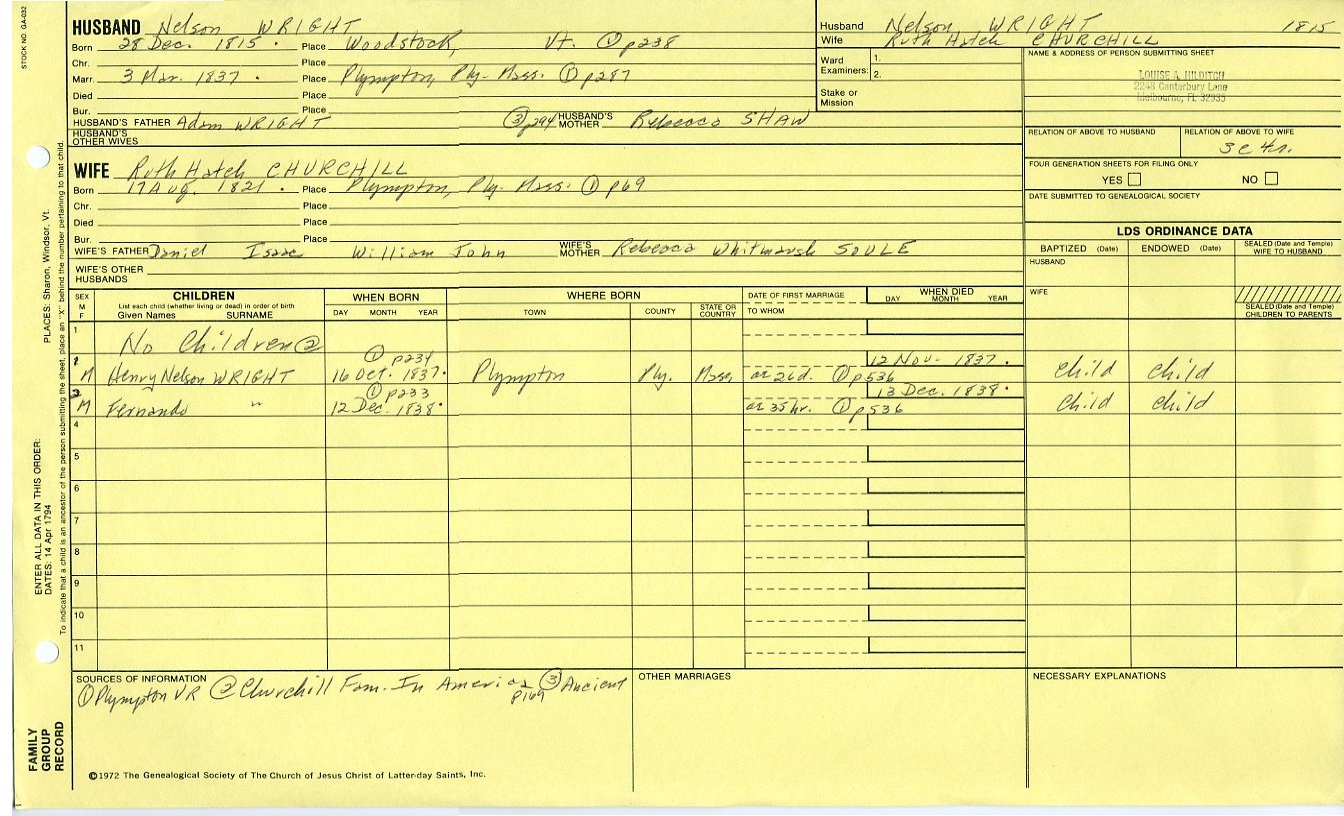 STOCK NO. GA-032
HUSBAND Nelson WRIGHT
Born 28 Dec. 1815 · Place Woodstock, Vt. ① p238
Chr. Place
Marr. 3 Mar. 1837 · Place Plympton, Ply- Mass. ① p287
Died Place
Bur. Place
HUSBAND'S FATHER Adam WRIGHT ③ p294 HUSBAND'S MOTHER Rebecca SHAW
HUSBAND'S OTHER WIVES
Husband Nelson WRIGHT 1815
Wife Ruth Hatch CHURCHILL
Ward Examiners: 1.
2.
Stake or Mission
NAME & ADDRESS OF PERSON SUBMITTING SHEET
LOUISE A. HILDITCH
2248 Canterbury Lane
Melbourne, FL 32935
RELATION OF ABOVE TO HUSBAND
RELATION OF ABOVE TO WIFE
3c 4r.
FOUR GENERATION SHEETS FOR FILING ONLY
YES NO
DATE SUBMITTED TO GENEALOGICAL SOCIETY
WIFE Ruth Hatch CHURCHILL
Born 17 Aug. 1821 · Place Plympton, Ply. Mass. ① p69
Chr. Place
Died Place
Bur. Place
WIFE'S FATHER Daniel Isaac William John WIFE'S MOTHER Rebecca Whitmarsh SOULE
WIFE'S OTHER HUSBANDS
LDS ORDINANCE DATA
BAPTIZED (Date) ENDOWED (Date) SEALED (Date and Temple) WIFE TO HUSBAND
HUSBAND
WIFE
SEALED (Date and Temple) CHILDREN TO PARENTS
SEX M F
CHILDREN
List each child (whether living or dead) in order of birth
Given Names SURNAME
WHEN BORN
DAY MONTH YEAR
WHERE BORN
TOWN COUNTY STATE OR COUNTRY
DATE OF FIRST MARRIAGE
TO WHOM
WHEN DIED
DAY MONTH YEAR
1 No Children ②
2 M Henry Nelson WRIGHT ① p234 16 Oct. 1837 · Plympton Ply. Mass ae 26d. ① p536 12 Nov. 1837 · child child
3 M Fernando " ① p233 12 Dec. 1838 · ae 35 hr. ① p536 13 Dec. 1838 · child child
4
5
6
7
8
9
10
11
SOURCES OF INFORMATION
① Plympton VR ② Churchill Fam. In America p169 ③ Ancient
OTHER MARRIAGES
NECESSARY EXPLANATIONS
©1972 The Genealogical Society of The Church of Jesus Christ of Latter-day Saints, Inc.
FAMILY GROUP RECORD
ENTER ALL DATA IN THIS ORDER:
DATES: 14 Apr 1794
PLACES: Sharon, Windsor, Vt.
To indicate that a child is an ancestor of the person submitting the sheet, place an "X" behind the number pertaining to that child.